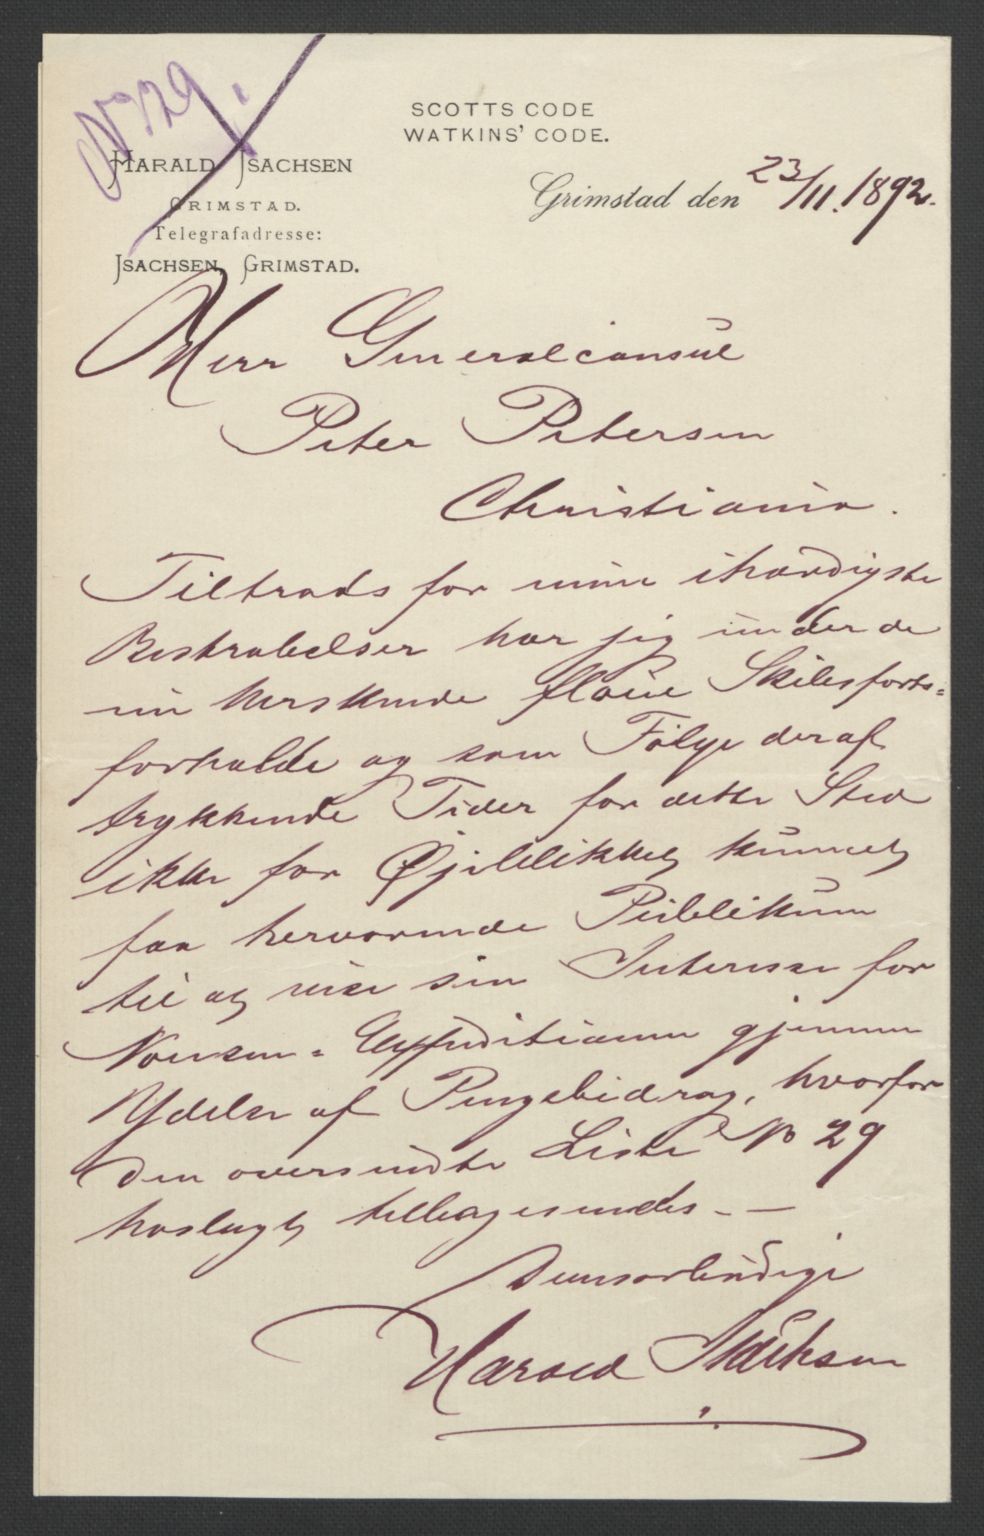 No 29.
SCOTTS CODE
WATKINS' CODE.
HARALD ISACHSEN
GRIMSTAD.
Telegrafadresse:
ISACHSEN, GRIMSTAD.
Grimstad den 23/11. 1892.
Herr Generalconsul
Peter Petersen
Christiania.
Tiltrods for mine ihærdigste
Bestræbelser har jeg under de
nu herskende flaue Skibsfarts-
forholde og som Følge deraf
trykkende Tider for dette Sted
ikke for Øjeblikket kunnet
faa herværende Publikum
til at vise sin Interesse for
Nansen-Expeditionen gjennem
Ydelse af Pengebidrag, hvorfor
den oversendte Liste No 29
hoslagt tilbagesendes. —
Deres ærbødige
Harald Isachsen